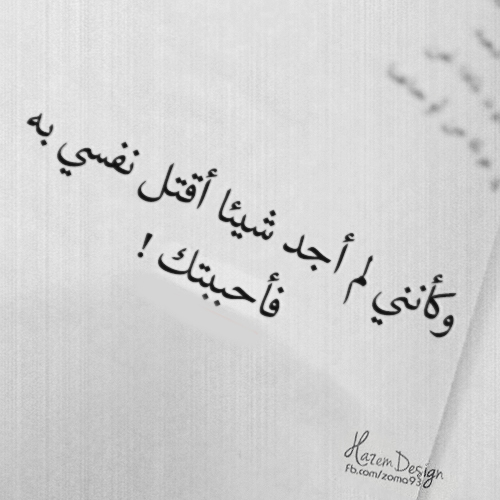 وكأنني لم أجد شيئا أقتل نفسي به
فأحببتك !
Hazem Design
Fb.com/zoma93